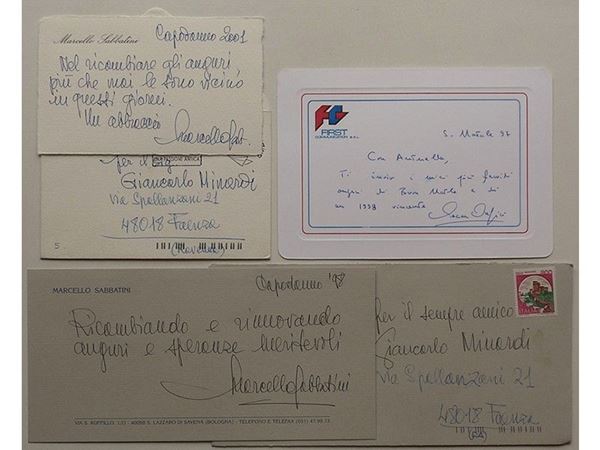 Marcello Sabbatini
Capodanno 2001
Nel ricambiare gli auguri
più che mai le sono vicino
in questi giorni.
Un abbraccio
MarcelloSabb.
per il Sig.
Giancarlo Minardi
Via Spallanzani 21
48018 Faenza
(Ravenna)
5.
FIRST
COMMUNICATION s.r.l.
S. Natale 97
Ti invio i miei più fervidi
auguri di Buon Natale e di
un 1998 vincente
MARCELLO SABBATINI
Capodanno '98
Ricambiando e rinnovando
auguri e speranze meritevoli
MarcelloSabbatini
VIA S. RUFFILLO, 1/21 - 40068 S. LAZZARO DI SAVENA (BOLOGNA) - TELEFONO E TELEFAX (051)
per il sempre amico
Giancarlo Minardi
Via Spallanzani 21
48018 Faenza
(RA)
ITALIA